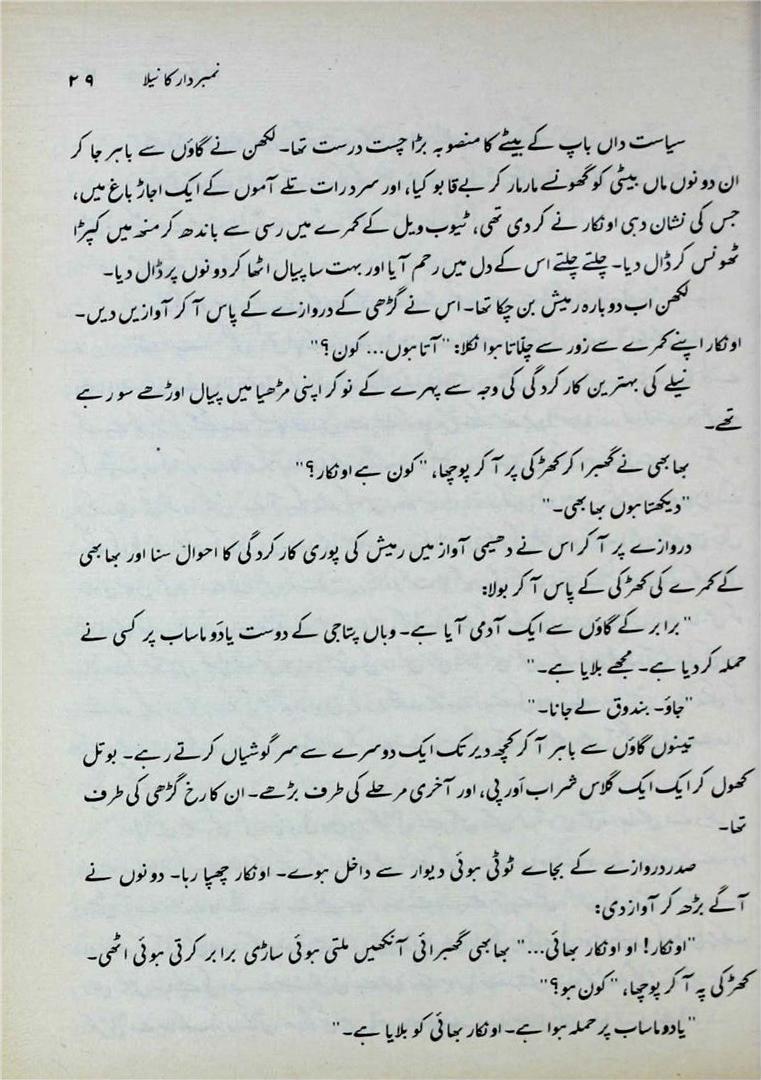 نمبردار کا نیلا ۲۹
سیاست داں باپ کے بیٹے کا منصوبہ بڑا چست درست تھا۔ لکھن نے گاؤں سے باہر جا کر
ان دونوں ماں بیٹی کو گھونسے مارمار کر بے قابو کیا، اور سرد رات تلے آموں کے ایک اجاڑ باغ میں،
جس کی نشان دہی اونکار نے کر دی تھی، ٹیوب ویل کے کمرے میں رسی سے باندھ کر منھ میں کپڑا
ٹھونس کر ڈال دیا۔ چلتے چلتے اس کے دل میں رحم آیا اور بہت سا پیال اٹھا کر دونوں پر ڈال دیا۔
لکھن اب دوبارہ رمیش بن چکا تھا۔ اس نے گڑھی کے دروازے کے پاس آ کر آوازیں دیں۔
اونکار اپنے کمرے سے زور سے چلّاتا ہوا نکلا: "آتا ہوں... کون؟"
نیلے کی بہترین کارکردگی کی وجہ سے پہرے کے نوکر اپنی مڑھیا میں پیال اوڑھے سو رہے
تھے۔
بھابھی نے گھبرا کر کھڑکی پر آ کر پوچھا، "کون ہے اونکار؟"
"دیکھتا ہوں بھابھی۔"
دروازے پر آ کر اس نے دھیمی آواز میں رمیش کی پوری کارکردگی کا احوال سنا اور بھابھی
کے کمرے کی کھڑکی کے پاس آ کر بولا:
"برابر کے گاؤں سے ایک آدمی آیا ہے۔ وہاں پتاجی کے دوست یادَو ماساب پر کسی نے
حملہ کر دیا ہے۔ مجھے بلایا ہے۔"
"جاؤ۔ بندوق لے جانا۔"
تینوں گاؤں سے باہر آ کر کچھ دیر تک ایک دوسرے سے سرگوشیاں کرتے رہے۔ بوتل
کھول کر ایک ایک گلاس شراب اَور پی، اور آخری مرحلے کی طرف بڑھے۔ ان کا رخ گڑھی کی طرف
تھا۔
صدر دروازے کے بجاے ٹوٹی ہوئی دیوار سے داخل ہوے۔ اونکار چھپا رہا۔ دونوں نے
آگے بڑھ کر آواز دی:
"اونکار! او اونکار بھائی..." بھابھی گھبرائی آنکھیں ملتی ہوئی ساڑی برابر کرتی ہوئی اٹھی۔
کھڑکی پہ آ کر پوچھا، "کون ہو؟"
"یادو ماساب پر حملہ ہوا ہے۔ اونکار بھائی کو بلایا ہے۔"